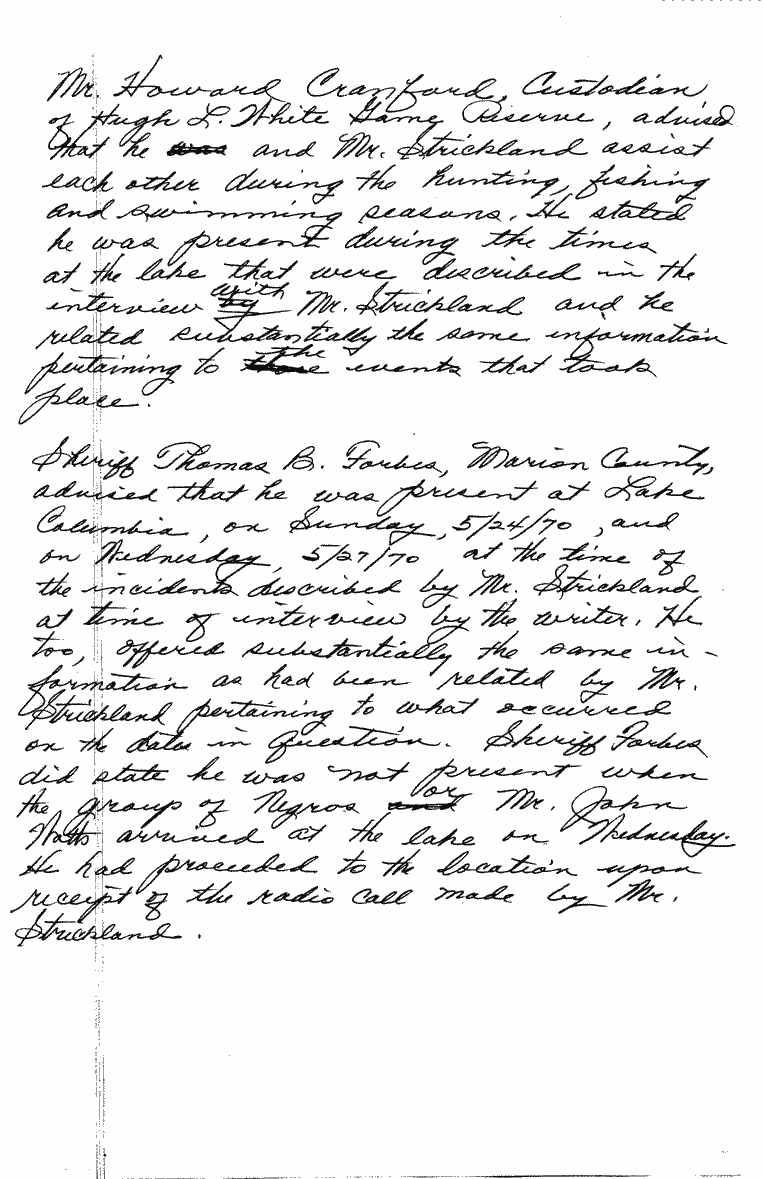 Mr. Howard Cranford, Custodian
of Hugh L. White Game Reserve, advised
that he was and Mr. Strickland assist
each other during the hunting, fishing
and swimming seasons. He stated
he was present during the times
at the lake that were described in the
interview by with Mr. Strickland and he
related substantially the same information
pertaining to those the events that took
place.
Sheriff Thomas B. Forbes, Marion County,
advised that he was present at Lake
Columbia, on Sunday, 5/24/70, and
on Wednesday, 5/27/70 at the time of
the incidents described by Mr. Strickland
at time of interview by the writer. He
too, offered substantially the same in-
formation as had been related by Mr.
Strickland pertaining to what occurred
on the dates in question. Sheriff Forbes
did state he was not present when
the group of Negros and or Mr. John
Watts arrived at the lake on Wednesday.
He had proceeded to the location upon
receipt of the radio call made by Mr.
Strickland.